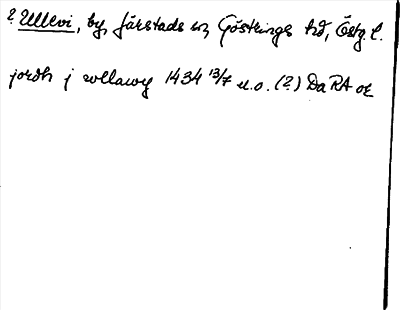 ? Ullevi, by, Järstads sn, Göstrings hd, Östg l.
jordh j wllawy 1434 13/7 u.o. (?) Da RA or